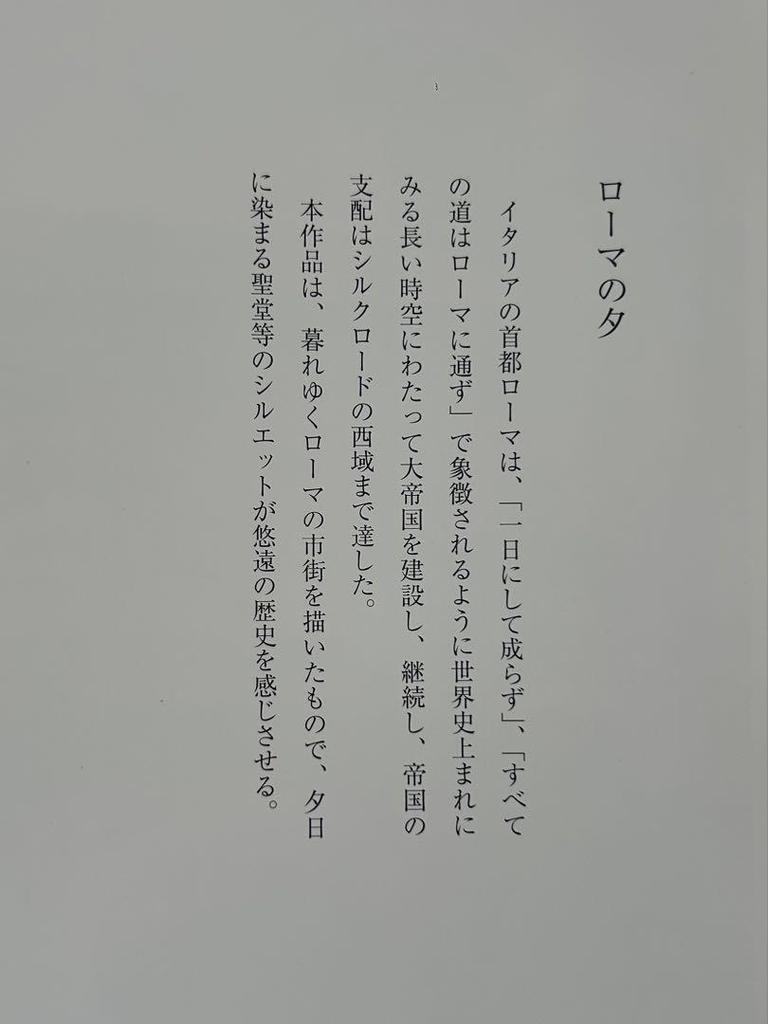 ローマの夕
イタリアの首都ローマは、「一日にして成らず」、「すべて
の道はローマに通ず」で象徴されるように世界史上まれに
みる長い時空にわたって大帝国を建設し、継続し、帝国の
支配はシルクロードの西域まで達した。
本作品は、暮れゆくローマの市街を描いたもので、夕日
に染まる聖堂等のシルエットが悠遠の歴史を感じさせる。